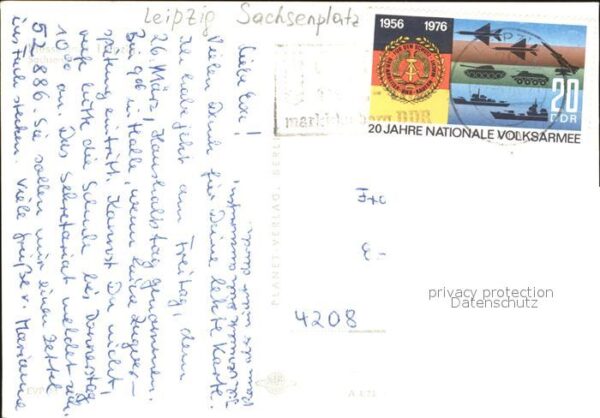 Leipzig Sachsenplatz
1956 1976
20
DDR
20 JAHRE NATIONALE VOLKSARMEE
markkleeberg DDR
Liebe Eva!
Vielen Dank für Deine letzte Karte.
Ich habe jetzt am Freitag, dem
26. März, Haushaltstag genommen.
Bin gg. in Halle, wenn keine Zugver-
spätung eintritt. Kannst Du nicht,
rufe bitte die Schule bis Donnerstag
10⁰⁰ an. Das Sekretariat meldet sich.
5 2 886. Sie sollen mir einen Zettel
ins Fach stecken. Viele Grüße v. Marianne
PLANET-VERLAG, BERLIN
4208
privacy protection
Datenschutz